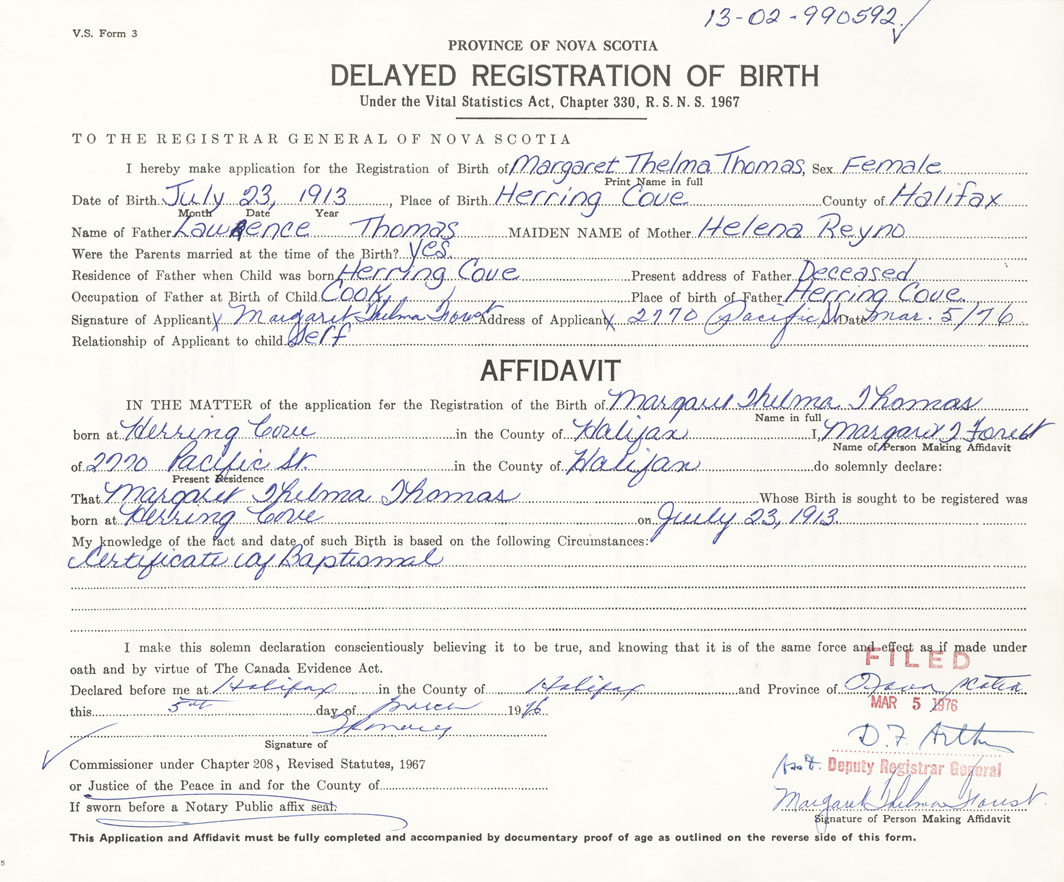 13-02-990592
V.S. Form 3
PROVINCE OF NOVA SCOTIA
DELAYED REGISTRATION OF BIRTH
Under the Vital Statistics Act, Chapter 330, R.S.N.S. 1967
TO THE REGISTRAR GENERAL OF NOVA SCOTIA
I hereby make application for the Registration of Birth of Margaret Thelma Thomas, Sex Female
Print Name in full
Date of Birth July 23, 1913, Place of Birth Herring Cove County of Halifax
Month Date Year
Name of Father Lawrence Thomas MAIDEN NAME of Mother Helena Reyno
Were the Parents married at the time of the Birth? yes.
Residence of Father when Child was born Herring Cove Present address of Father Deceased
Occupation of Father at Birth of Child Cook, Place of birth of Father Herring Cove.
Signature of Applicant X Margaret Thelma Forest Address of Applicant X 2770 Pacific St Date Mar. 5/76
Relationship of Applicant to child Self
AFFIDAVIT
IN THE MATTER of the application for the Registration of the Birth of Margaret Thelma Thomas
Name in full
born at Herring Cove in the County of Halifax I, Margaret T Forest
Name of Person Making Affidavit
of 2770 Pacific St. in the County of Halifax do solemnly declare:
Present Residence
That Margaret Thelma Thomas Whose Birth is sought to be registered was
born at Herring Cove on July 23, 1913.
My knowledge of the fact and date of such Birth is based on the following Circumstances:
Certificate of Baptismal
I make this solemn declaration conscientiously believing it to be true, and knowing that it is of the same force and effect as if made under
oath and by virtue of The Canada Evidence Act.
FILED
Declared before me at Halifax in the County of Halifax and Province of Nova Scotia
this 5th day of March 1976
MAR 5 1976
Signature of
D.F. Arthur
Commissioner under Chapter 208, Revised Statutes, 1967
Asst. Deputy Registrar General
or Justice of the Peace in and for the County of
Margaret Thelma Forest
If sworn before a Notary Public affix seal.
Signature of Person Making Affidavit
This Application and Affidavit must be fully completed and accompanied by documentary proof of age as outlined on the reverse side of this form.
5